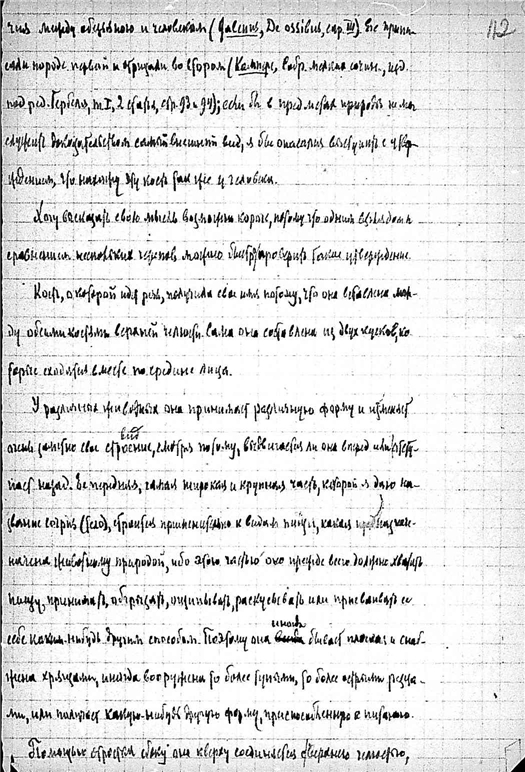 112
чия между обезьяною и человеком (Galenus, De ossibus, cap. III). Ее припи-
сали породе первой и отрицали во втором (Кампер, собр. мелких сочин., изд.
под ред. Гербеля, т. I, 2 статья, стр. 93 и 94); если бы в предметах природы не мог
служить доказательством самый внешний вид, я бы опасался выступить с утвер-
ждением, что нахожу эту кость также и у человека.
Хочу высказать свою мысль возможно короче, потому что одним взглядом и
сравнением нескольких черепов можно быстро проверить такое утверждение.
Кость, о которой идет речь, получила свое имя потому, что она вставлена меж-
ду обеими костями верхней челюсти. Сама она составлена из двух кусков, ко-
торые сходятся вместе по средине лица.
У различных животных она принимает различную форму и изменяет
очень заметно свое строение, вид смотря потому, выдвигается ли она вперед или
назад. Ее передняя, самая широкая и крупная часть, которой я даю на-
звание corpus (тело), строится применительно к видам пищи, какая предназна-
начена животному природой, ибо этою частью оно прежде всего должно хватать
пищу, принимать, обгрызать, ощипывать, раскусывать или присваивать ее
себе каким-нибудь другим способом. Поэтому она иногда бывает плоская и снаб-
жена хрящами, иногда вооружена то более тупыми, то более острыми резца-
ми, или получает какую-нибудь другую форму, приспособленную к питанию.
Помощью отростка сбоку она кверху соединяется с верхнею челюстью,